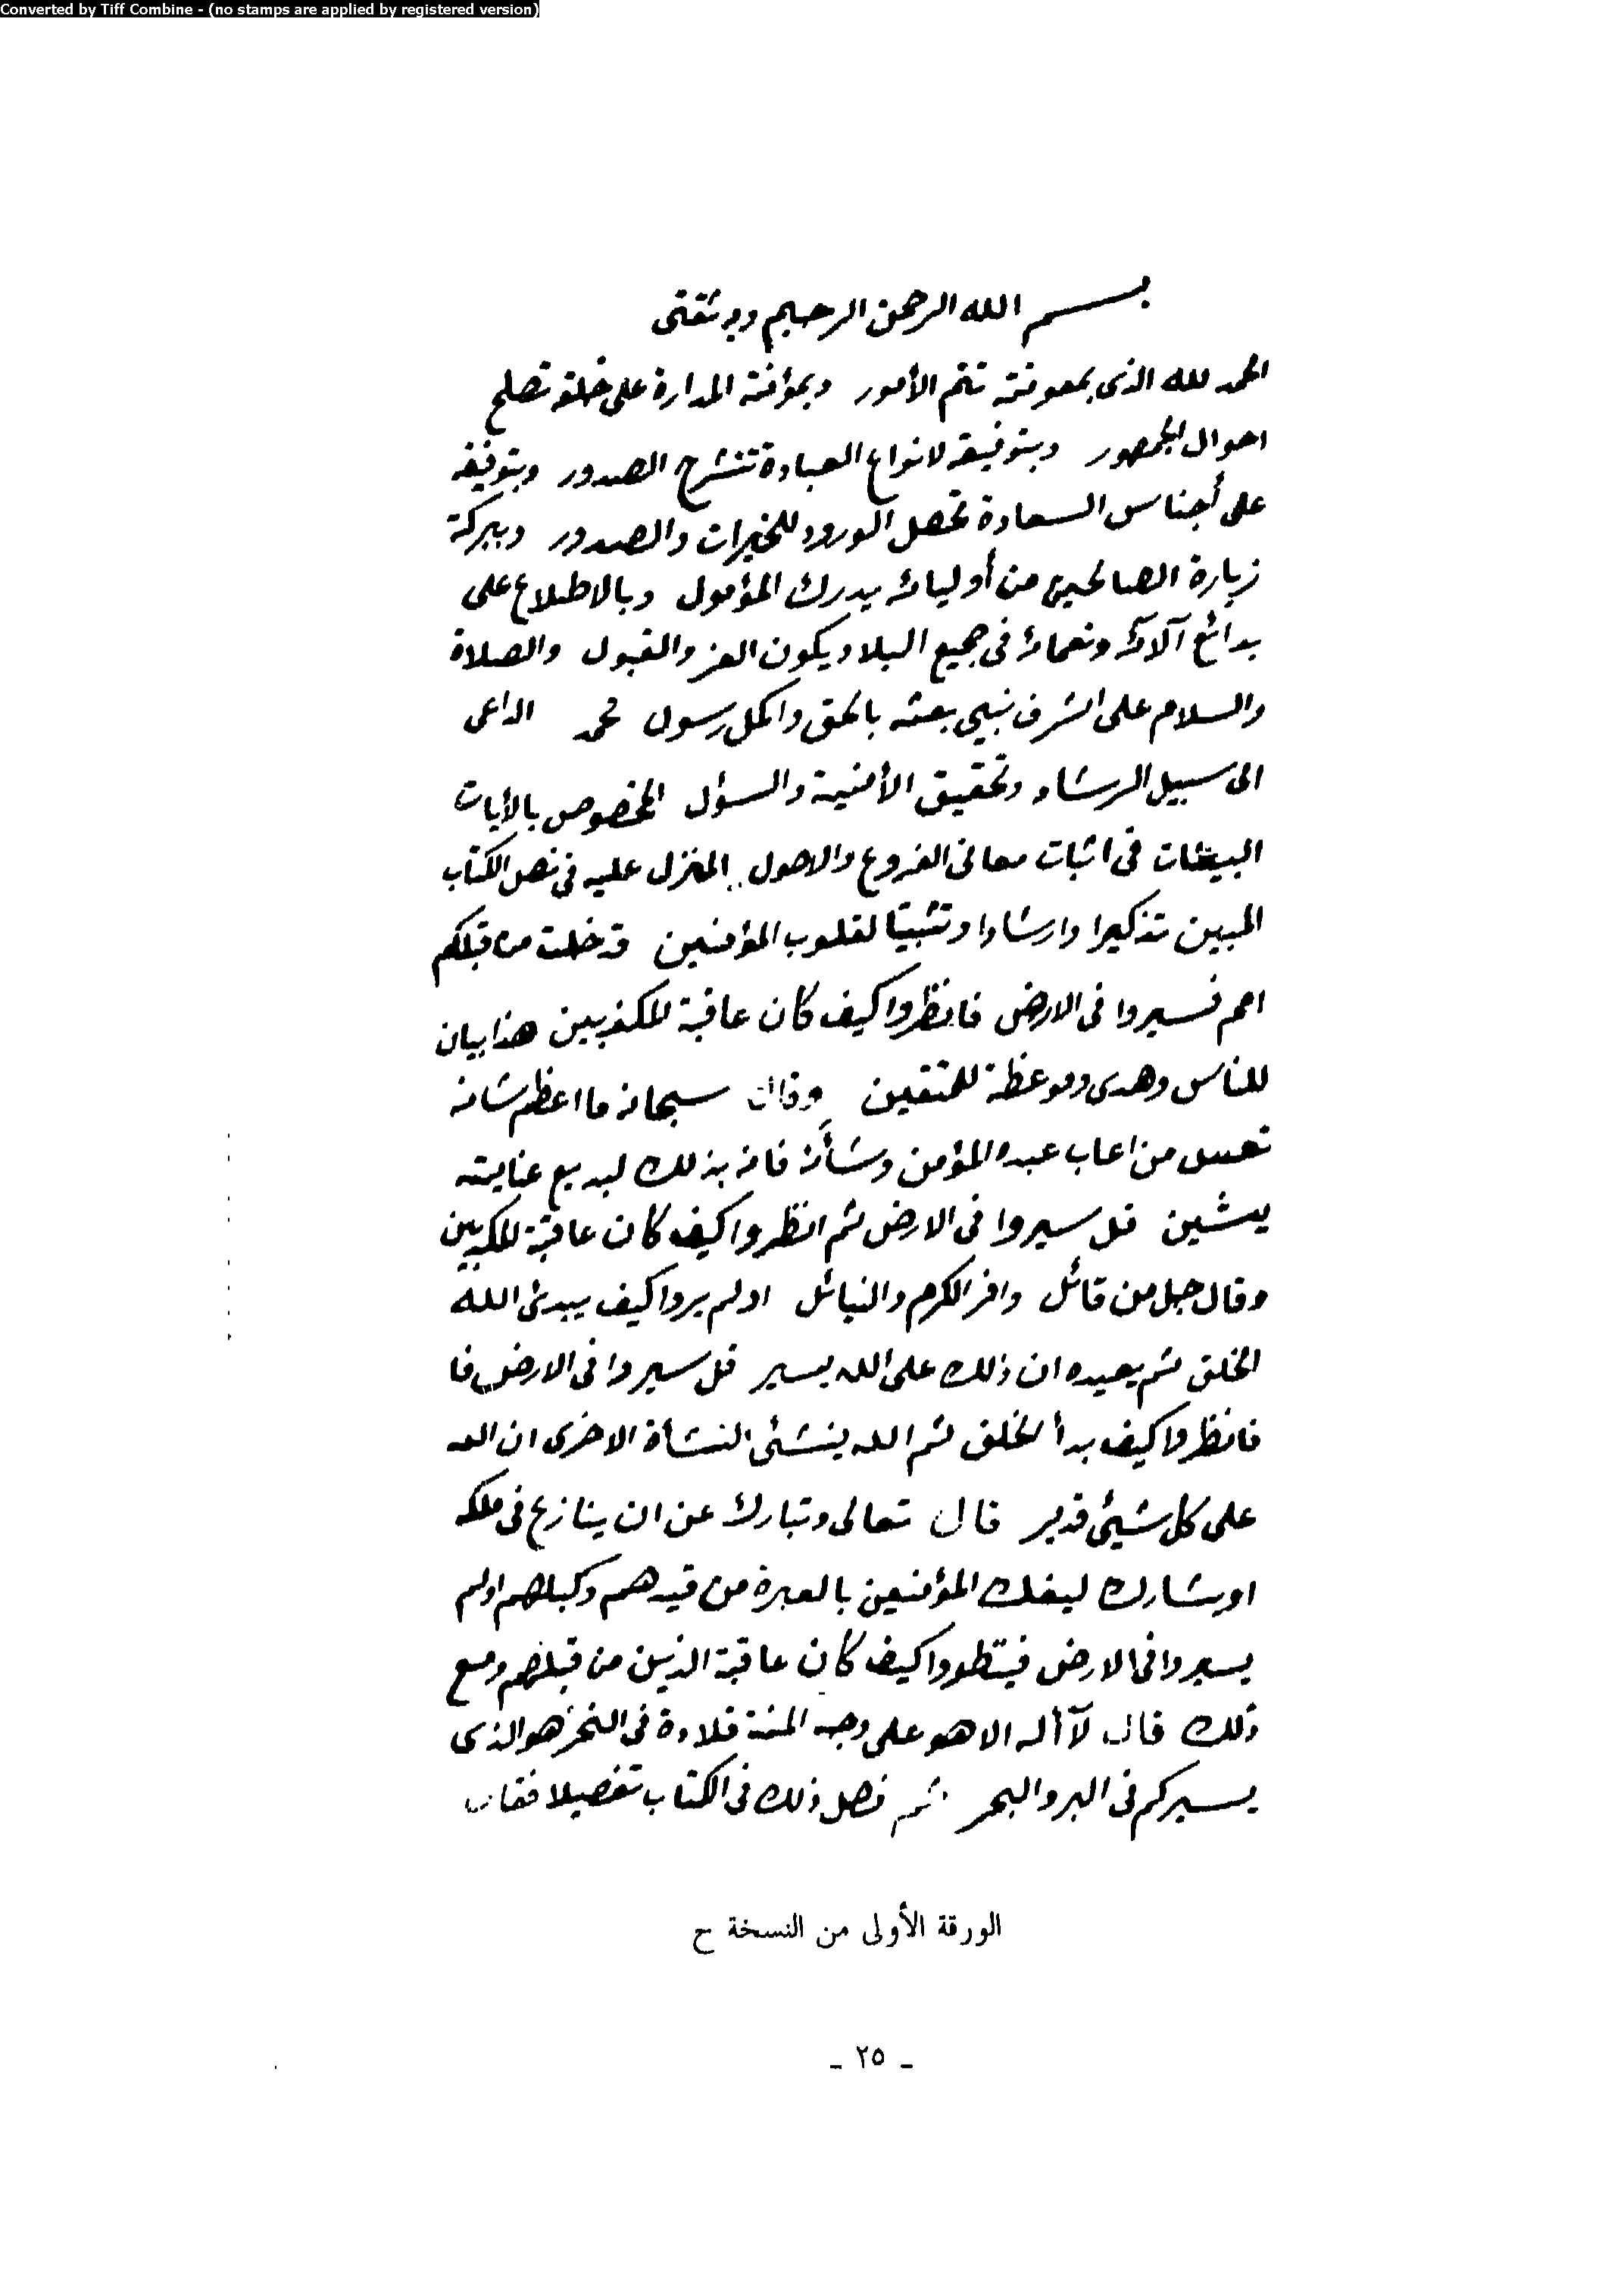 Converted by Tiff Combine - (no stamps are applied by registered version)
بسم الله الرحمن الرحيم وبه ثقتى
الحمد لله الذى بمعونته تتم الأمور وبمؤنته المدارة على خلقه تصلح
احوال الجمهور وبتوفيقه لانواع العبادة تنشرح الصدور وبتوفيقه
على أجناس السعادة تحصل الورود للخيرات والصدور وببركة
زيارة الصالحين من أوليائه يدرك المؤمول وبالاطلاع على
بدائع آلائه ونعمائه فى جميع البلاد يكون العز والقبول والصلاة
والسلام على اشرف نبيي بعثه بالحق واكمل رسول محمد الداعى
الى سبيل الرشاد وتحقيق الأمنية والسؤل المخصوص بالأيات
البينات فى اثبات معانى الفروع والاصول المنزل عليه فى نص الكتاب
المبين تذكيرا وارشادا وتثبيتا لقلوب المؤمنين قد خلت من قبلكم
امم فسيروا فى الارض فانظروا كيف كان عاقبة المكذبين هذا بيان
للناس وهدى وموعظة للمتقين وقال سبحانه ما اعظم شانه
من اعاب عبده المؤمن وشأنه فانه بذلك لبديع عنايته
يشين قل سيروا فى الارض ثم انظروا كيف كان عاقبة المكذبين
وقال جل من قائل وافر الكرم والنبائل اولم يروا كيف يبدئ الله
الخلق ثم يعيده ان ذلك على الله يسير قل سيروا فى الارض فا
فانظروا كيف بدأ الخلق ثم الله ينشئ النشأة الاخرى ان الله
على كل شيئ قدير قال تعالى وتبارك عن ان ينازع فى ملكه
او يشارك ليفك المؤمنين بالعبرة من قيدهم وكبلهم اولم
يسيروا فى الارض فينظروا كيف كان عاقبة الذين من قبلهم ومع
ذلك قال لآ أله الا هو على وجه المنة قلادة فى النحر هو الذى
يسيركم فى البر والبحر ثم فصل ذلك فى الكتاب تفصيلا فقال
الورقة الأولى من النسخة ح
- ٢٥ -